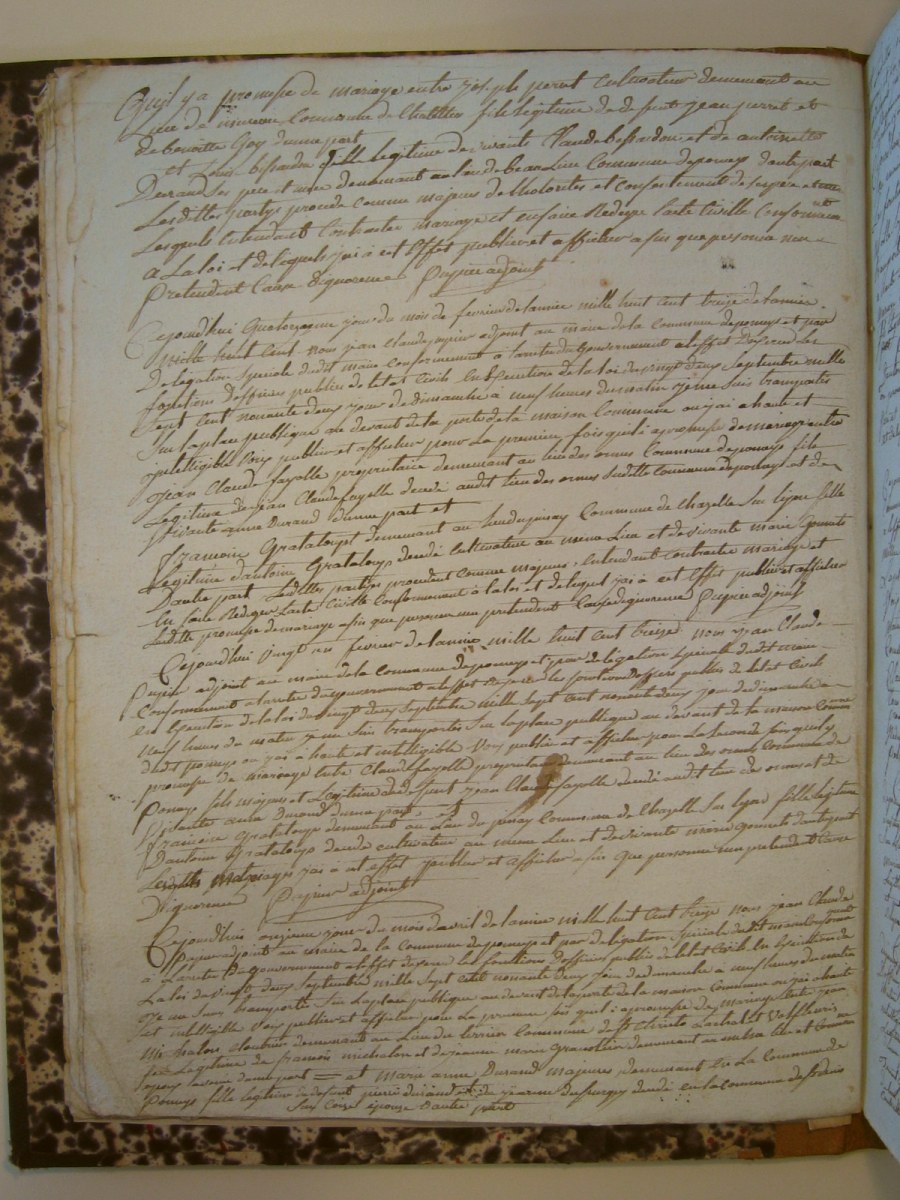 qu'il y a promesse de mariage entre joseph perret Cultivateur demeurant au
Lieu de Commune de Chatillon fils légitime de defunt jean perret et
de benoitte Gay d'une part
et bissardon fille legitime de vivants Claude bissardon et de antoinette
Durand ses pere et mere demeurant au lieu de beaulieu Commune de pomeys d'autre part
Lesdittes partys procede comme majeurs de et consentement de
Lesquels Entendant Contracter mariage et en faire Rediger l'acte Civille Conformement
a La loi et desquels jai à cet Effet publier et afficher afin que personne n'en
Pretendent Cause d'ignorence Papier adjoint
Cejourdhui quatorzieme jour du mois de fevrier de lannée mille huit Cent treize
mille huit Cent nous jean Claude papier adjoint au maire de la commune de pomeys et par
Delegation speciale dudit maire conformement à larrete du Gouvernement a leffet Dexercer les
fonctions d'officier publics de letat Civils En Execution de la loi du vingt deux Septembre mille
sept Cent nonante deux jour de dimanche à neuf heures du matin je me suis transportés
Sur la place publique au devant de la porte de la maison Commune ou jai à haute et
intelligible Voix publier et afficher pour La premiere fois quil à promesse de mariage entre
jean Claude fayolle propriétaire demeurant au lieu des ormes Commune de pomeys fils
Legitime de jean Claude fayolle decedé audit lieu des ormes Susditte Commune de pomeys et de
Vivante anne Durand d'une part et
francoise Grataloup demeurant au Commune de Chazelle Sur lyon fille
Legitime d'antoine Grataloup decedé Cultivateur au meme Lieu et de vivante marie
Dautre part Lesdittes partyes procedent Comme majeurs, entendant contracter mariage et
En faire Rediger Lacte Civille conformement à la loi et desquel jai à cet Effet publier et afficher
Laditte promesse de mariage afin que personne nen pretendent Cause dignorence Papier adjoint
Cejourdhui vingt un fevrier de lannée mille huit cent treize nous jean Claude
Papier adjoint au maire de la Commune de pomeys et par delégation speciale dudit maire
Conformement à larrete du gouvernement a leffet Dexercer les fonctions d'officiers publics de letat Civil
en Execution de la loi du vingt deux Septembre mille sept cent nonante deux jour de dimanche à
neuf heures du matin je me Suis transportés Sur la place publique au devant de la maison Commune
dudit pomeys ou jai à haute et intelligible Voix publié et afficher pour La seconde fois quil y à
promesse de mariage entre Claude fayolle propriétaire demeurant au lieu des ormes Commune de
Pomeys fils majeur et Legitime de defunt jean Claude fayolle decedé audit lieu de ormes et de
Vivante anne Durand d'une part et
francoise Grataloup demeurant au Lieu du Commune de Chazelle Sur lyon fille Legitime
Dantoine Grataloup decedé cultivateur au meme Lieu et de vivante marie dautre part
Lesdits Mariages jai à cet effet publier et afficher afin que personne nen pretendent Cause
Dignorence Papier adjoint
Cejourdhui onzieme jour du mois davril de lannée mille huit Cent treize nous jean Claude
Papier adjoint au maire de la commune de pomeys et par delegation speciale dudit maire Conforme
à Larrete Du gouvernement a leffet dexercer les fonctions d'officiers public de letat Civile En Execution de
La loi du vingt deux Septembre mille Sept cent nonante deux jour de dimanche à neuf heures du matin
je me suis transporté Sur La place publique au devant de la porte de la maison Commune ou jai à haute
et intelligible Voix publier et afficher pour La premiere fois quil à promesse de mariage entre jean
michalon demeurant au Lieu du Commune de St
fils Legitime de francois michalon et de jeanne marie demeurant au
d'une part et marie anne Durand majeure demeurant En La Commune de
Pomeys fille legitime de defunt pierre durand et de jeanne decedé en la commune de
Son epouse Dautre part